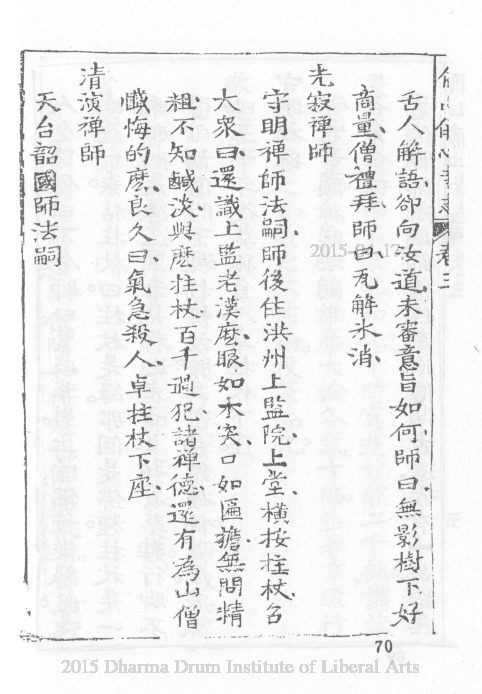 舌人解語却向汝道未審意旨如何師曰無影樹下好
商量僧禮拜師曰瓦解氷消
光寂禪師
守明禪師法嗣師後住洪州上監院上堂橫按拄杖召
大衆曰還識上監老漢麽眼如木突口如匾擔無問精
粗不知鹹淡與麽拄杖百千過犯諸禪德還有為山僧
懺悔的麽良久曰氣急殺人卓拄杖下座
清演禪師
天台韶國師法嗣
卷三
70
2015 Dharma Drum Institute of Liberal Arts